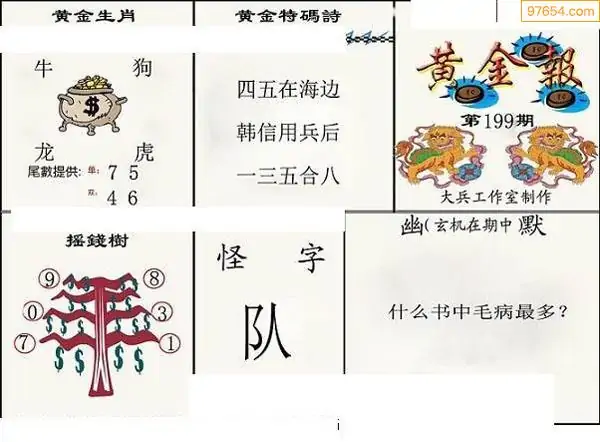 黄金生肖
牛 狗
$
龙 虎
尾數提供: 单: 7 5
双: 4 6
黄金特碼詩
四五在海边
韩信用兵后
一三五合八
97654.com
黄金報
第199期
大兵工作室制作
摇錢樹
9 8
0 3
7 1
$ $ $ $ $ $ $ $
$ $ $ $ $ $
怪 字
队
幽(玄机在期中)默
什么书中毛病最多?